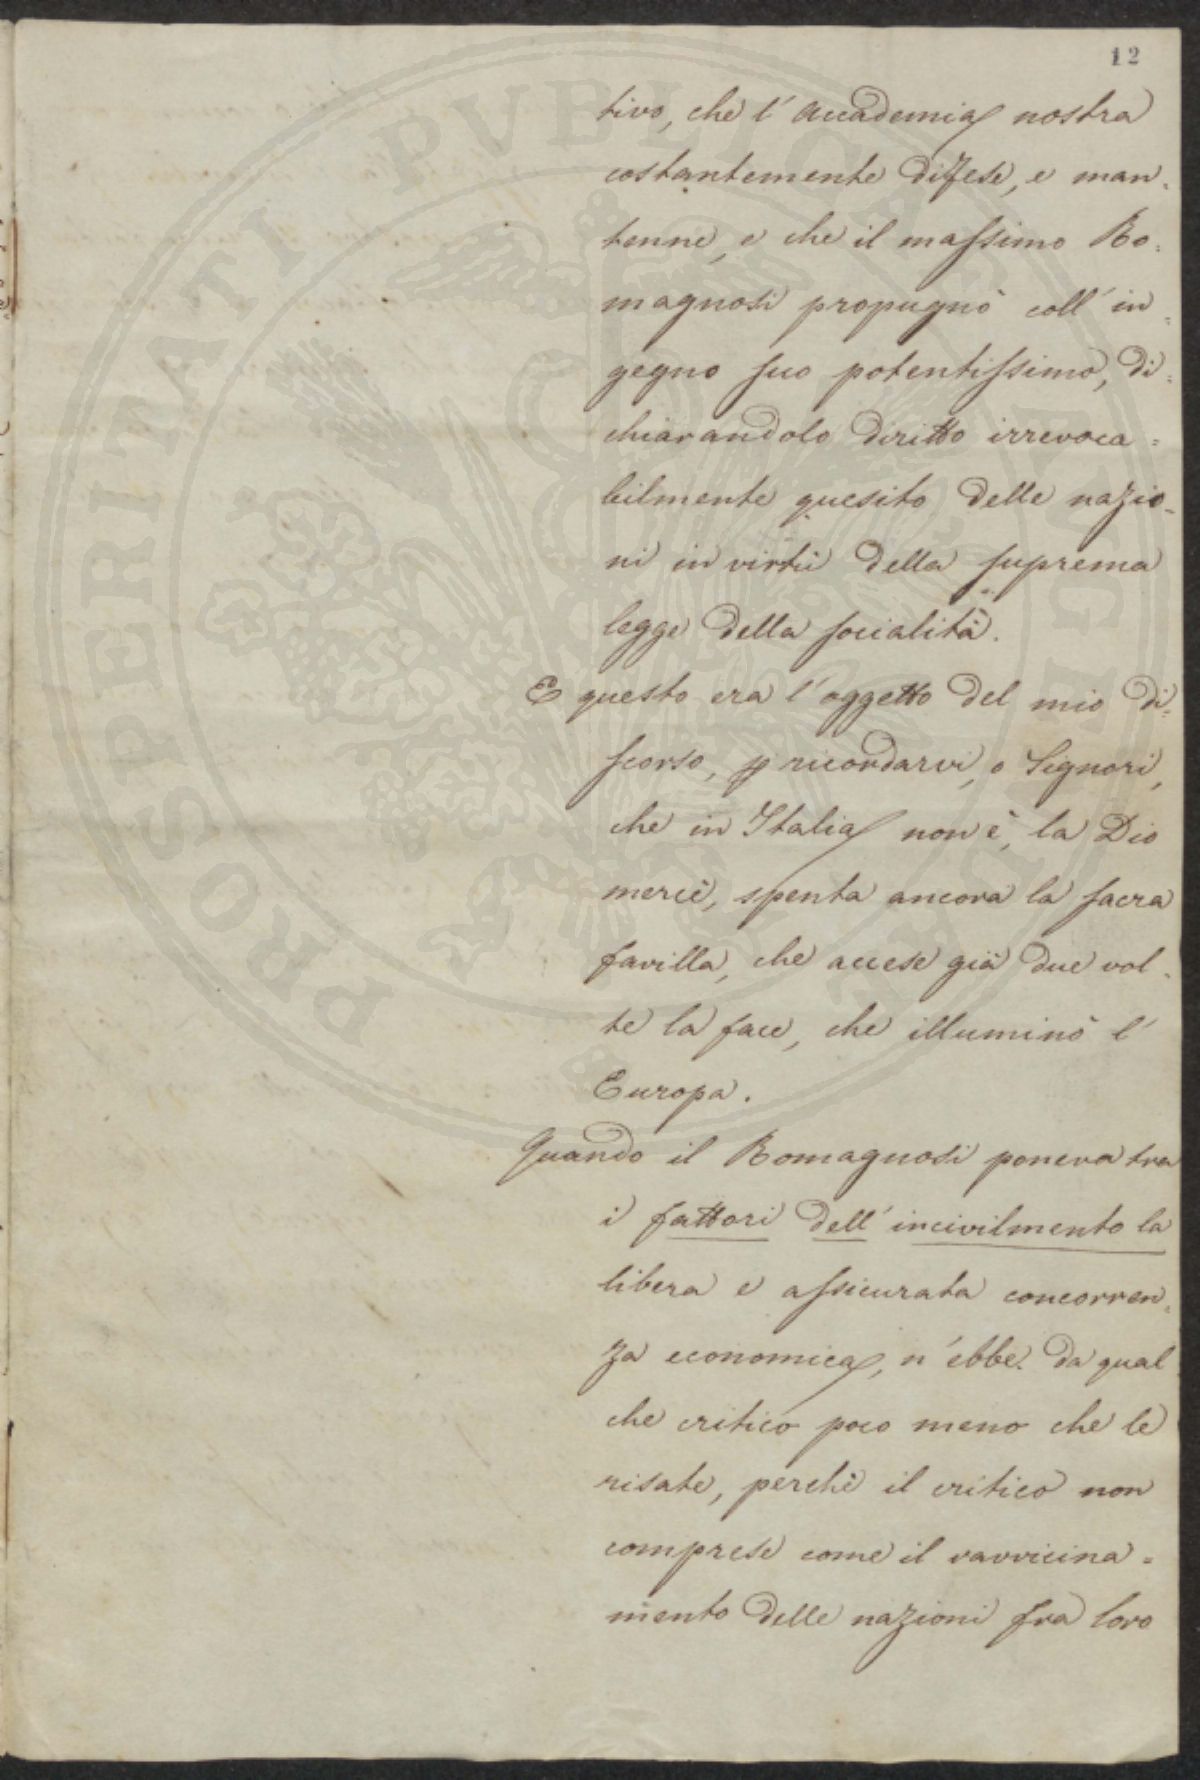 12
tivo, che l'Accademia nostra
costantemente difese, e man-
tenne, e che il massimo Ro-
magnosi propugnò coll'in-
gegno suo potentissimo, di-
chiarandolo diritto irrevoca-
bilmente quesito delle nazio-
ni in virtù della suprema
legge della socialità.
E questo era l'oggetto del mio di-
scorso, p ricordarvi, o Signori,
che in Italia non è, la Dio
mercè, spenta ancora la sacra
favilla, che accese già due vol-
te la face, che illuminò l'
Europa.
Quando il Romagnosi poneva tra
i fattori dell'incivilmento la
libera e assicurata concorren-
za economica, n'ebbe da qual
che critico poco meno che le
risate, perchè il critico non
comprese come il ravvicina-
mento delle nazioni fra loro
PROSPERITATI PVBLICAE AVGENDAE